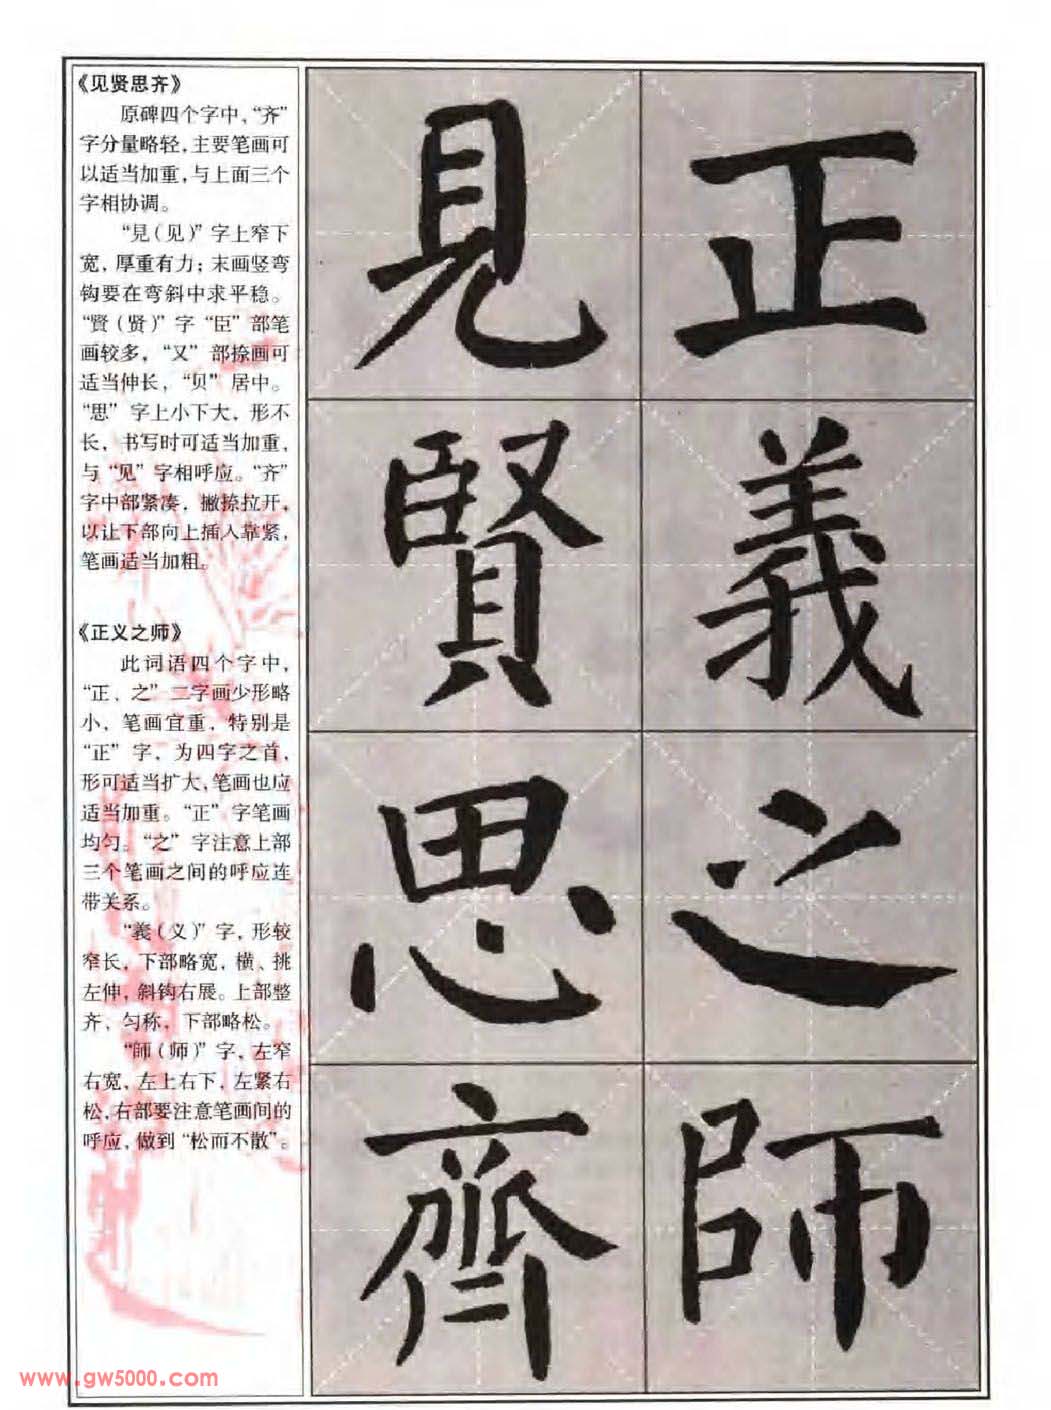 《见贤思齐》
原碑四个字中，“齐”
字分量略轻，主要笔画可
以适当加重，与上面三个
字相协调。
“見（见）”字上窄下
宽，厚重有力；末画竖弯
钩要在弯斜中求平稳。
“賢（贤）”字“臣”部笔
画较多，“又”部捺画可
适当伸长，“贝”居中。
“思”字上小下大，形不
长，书写时可适当加重，
与“见”字相呼应。“齐”
字中部紧凑，撇捺拉开，
以让下部向上插入靠紧，
笔画适当加粗。
《正义之师》
此词语四个字中，
“正、之”二字画少形略
小，笔画宜重，特别是
“正”字，为四字之首，
形可适当扩大，笔画也应
适当加重。“正”字笔画
均匀。“之”字注意上部
三个笔画之间的呼应连
带关系。
“義（义）”字，形较
窄长，下部略宽，横、挑
左伸，斜钩右展。上部整
齐、匀称，下部略松。
“師（师）”字，左窄
右宽，左上右下，左紧右
松，右部要注意笔画间的
呼应，做到“松而不散”。
正
義
之
師
見
賢
思
齊
www.gw5000.com